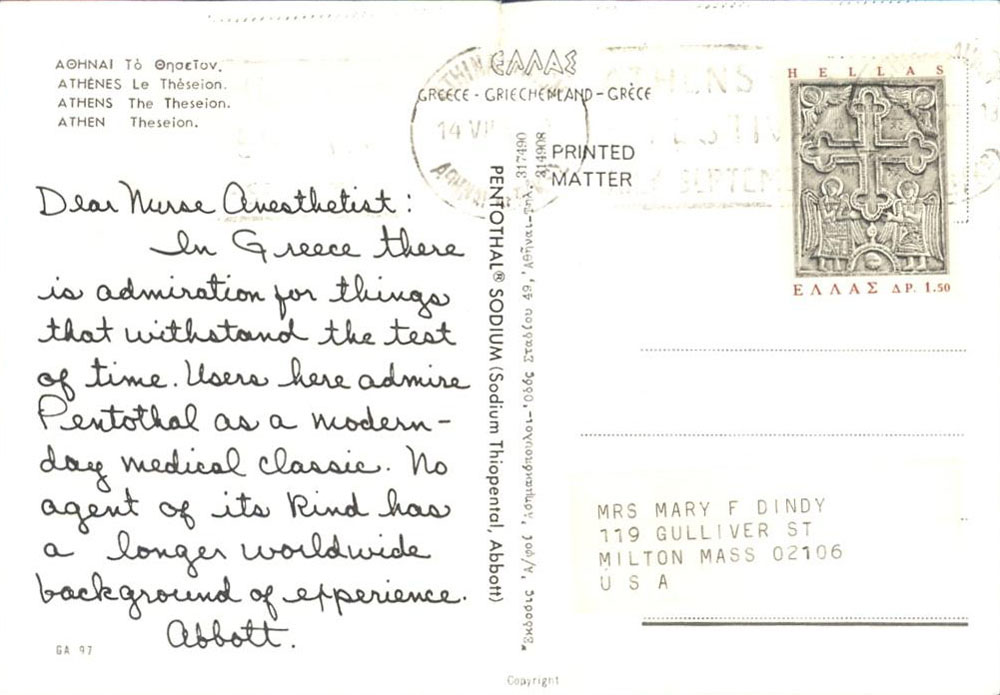 ΑΘΗΝΑΙ Τὸ Θησεῖον.
ATHÈNES Le Théseion.
ATHENS The Theseion.
ATHEN Theseion.
Dear Nurse Anesthetist:
In Greece there
is admiration for things
that withstand the test
of time. Users here admire
Pentothal as a modern-
day medical classic. No
agent of its kind has
a longer worldwide
background of experience.
Abbott.
GA 97
ΕΛΛΑΣ
GREECE - GRIECHENLAND - GRÈCE
14 VII
ATHENS
PRINTED
MATTER
317490
314908
PENTOTHAL® SODIUM (Sodium Thiopental, Abbott)
HELLAS
ΕΛΛΑΣ ΔΡ. 1.50
MRS MARY F DINDY
119 GULLIVER ST
MILTON MASS 02106
U S A
Copyright